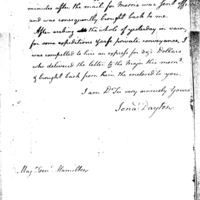 minutes after the mail for Morris was sent off
and was consequently brought back to me.
After waiting the whole of yesterday in vain,
for some expeditious & safe private conveyance, I
was compelled to hire an express for 2½ Dollars
who delivered the letter to the Major this morng.
& brought back from him the enclosed to you.
I am Dr. Sir very sincerely Yours
Jona: Dayton
Maj: Genl. Hamilton